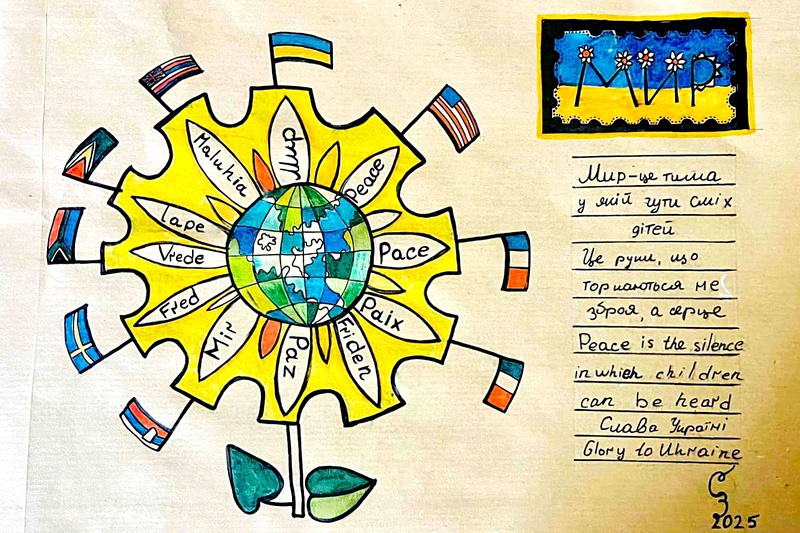 Мир
Peace
Pace
Paix
Friden
Paz
Mir
Fred
Vrede
Tape
Maluhia
Мир
Мир-це тиша
у якій чути сміх
дітей
Це руки, що
торкаються не
зброя, а серце
Peace is the silence
in which children
can be heard
Слава Україні
Glory to Ukraine
2025